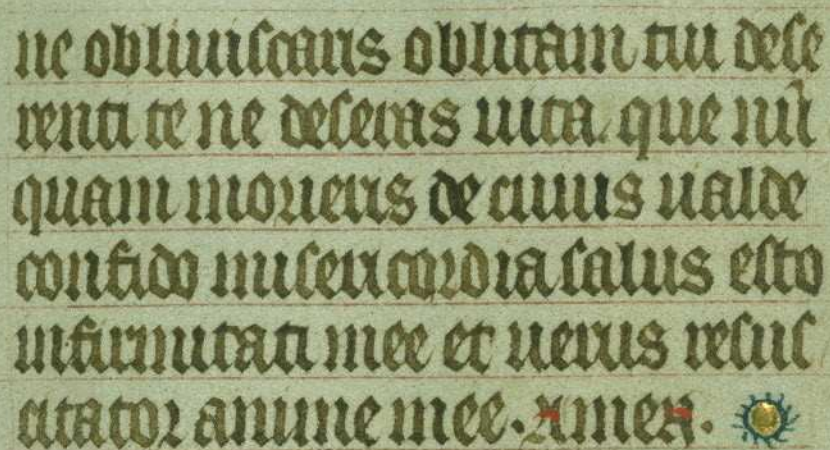 ne obliuiscaris oblitam tui dese
renti te ne deseras uita que nū
quam morieris de cuius ualde
confido misericordia salus esto
infirmitati mee et uerus resus
citator anime mee. Amen.